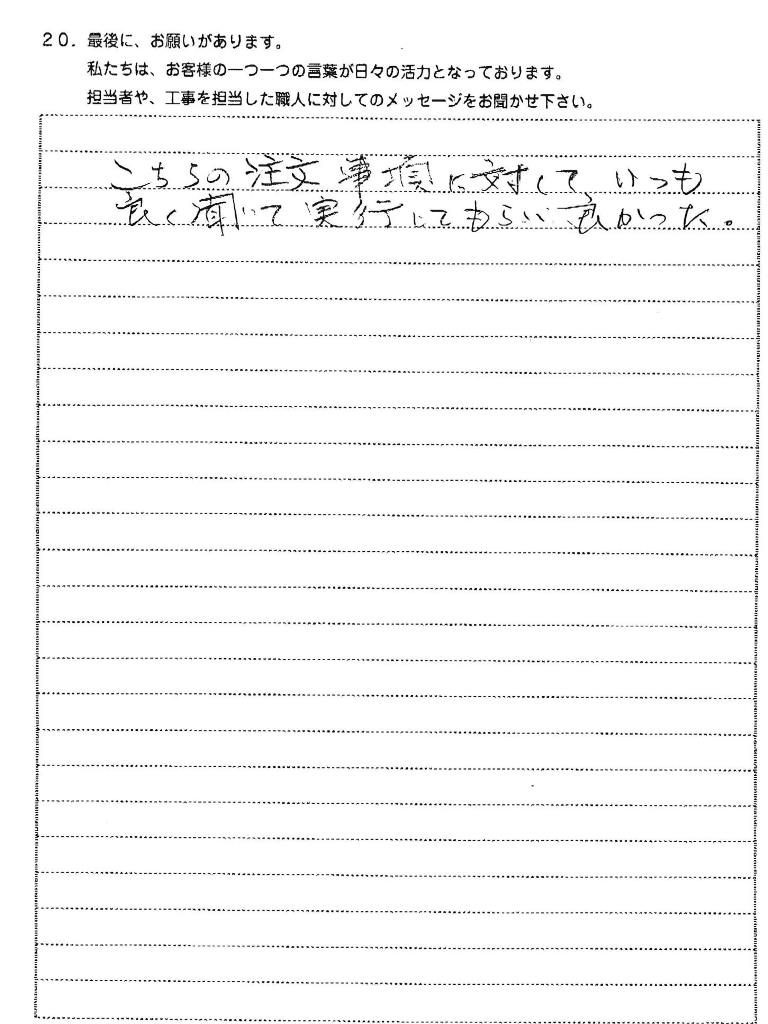 20. 最後に、お願いがあります。
私たちは、お客様の一つ一つの言葉が日々の活力となっております。
担当者や、工事を担当した職人に対してのメッセージをお聞かせ下さい。
こちらの注文事項に対して、いつも
良く聞いて実行してもらい良かった。